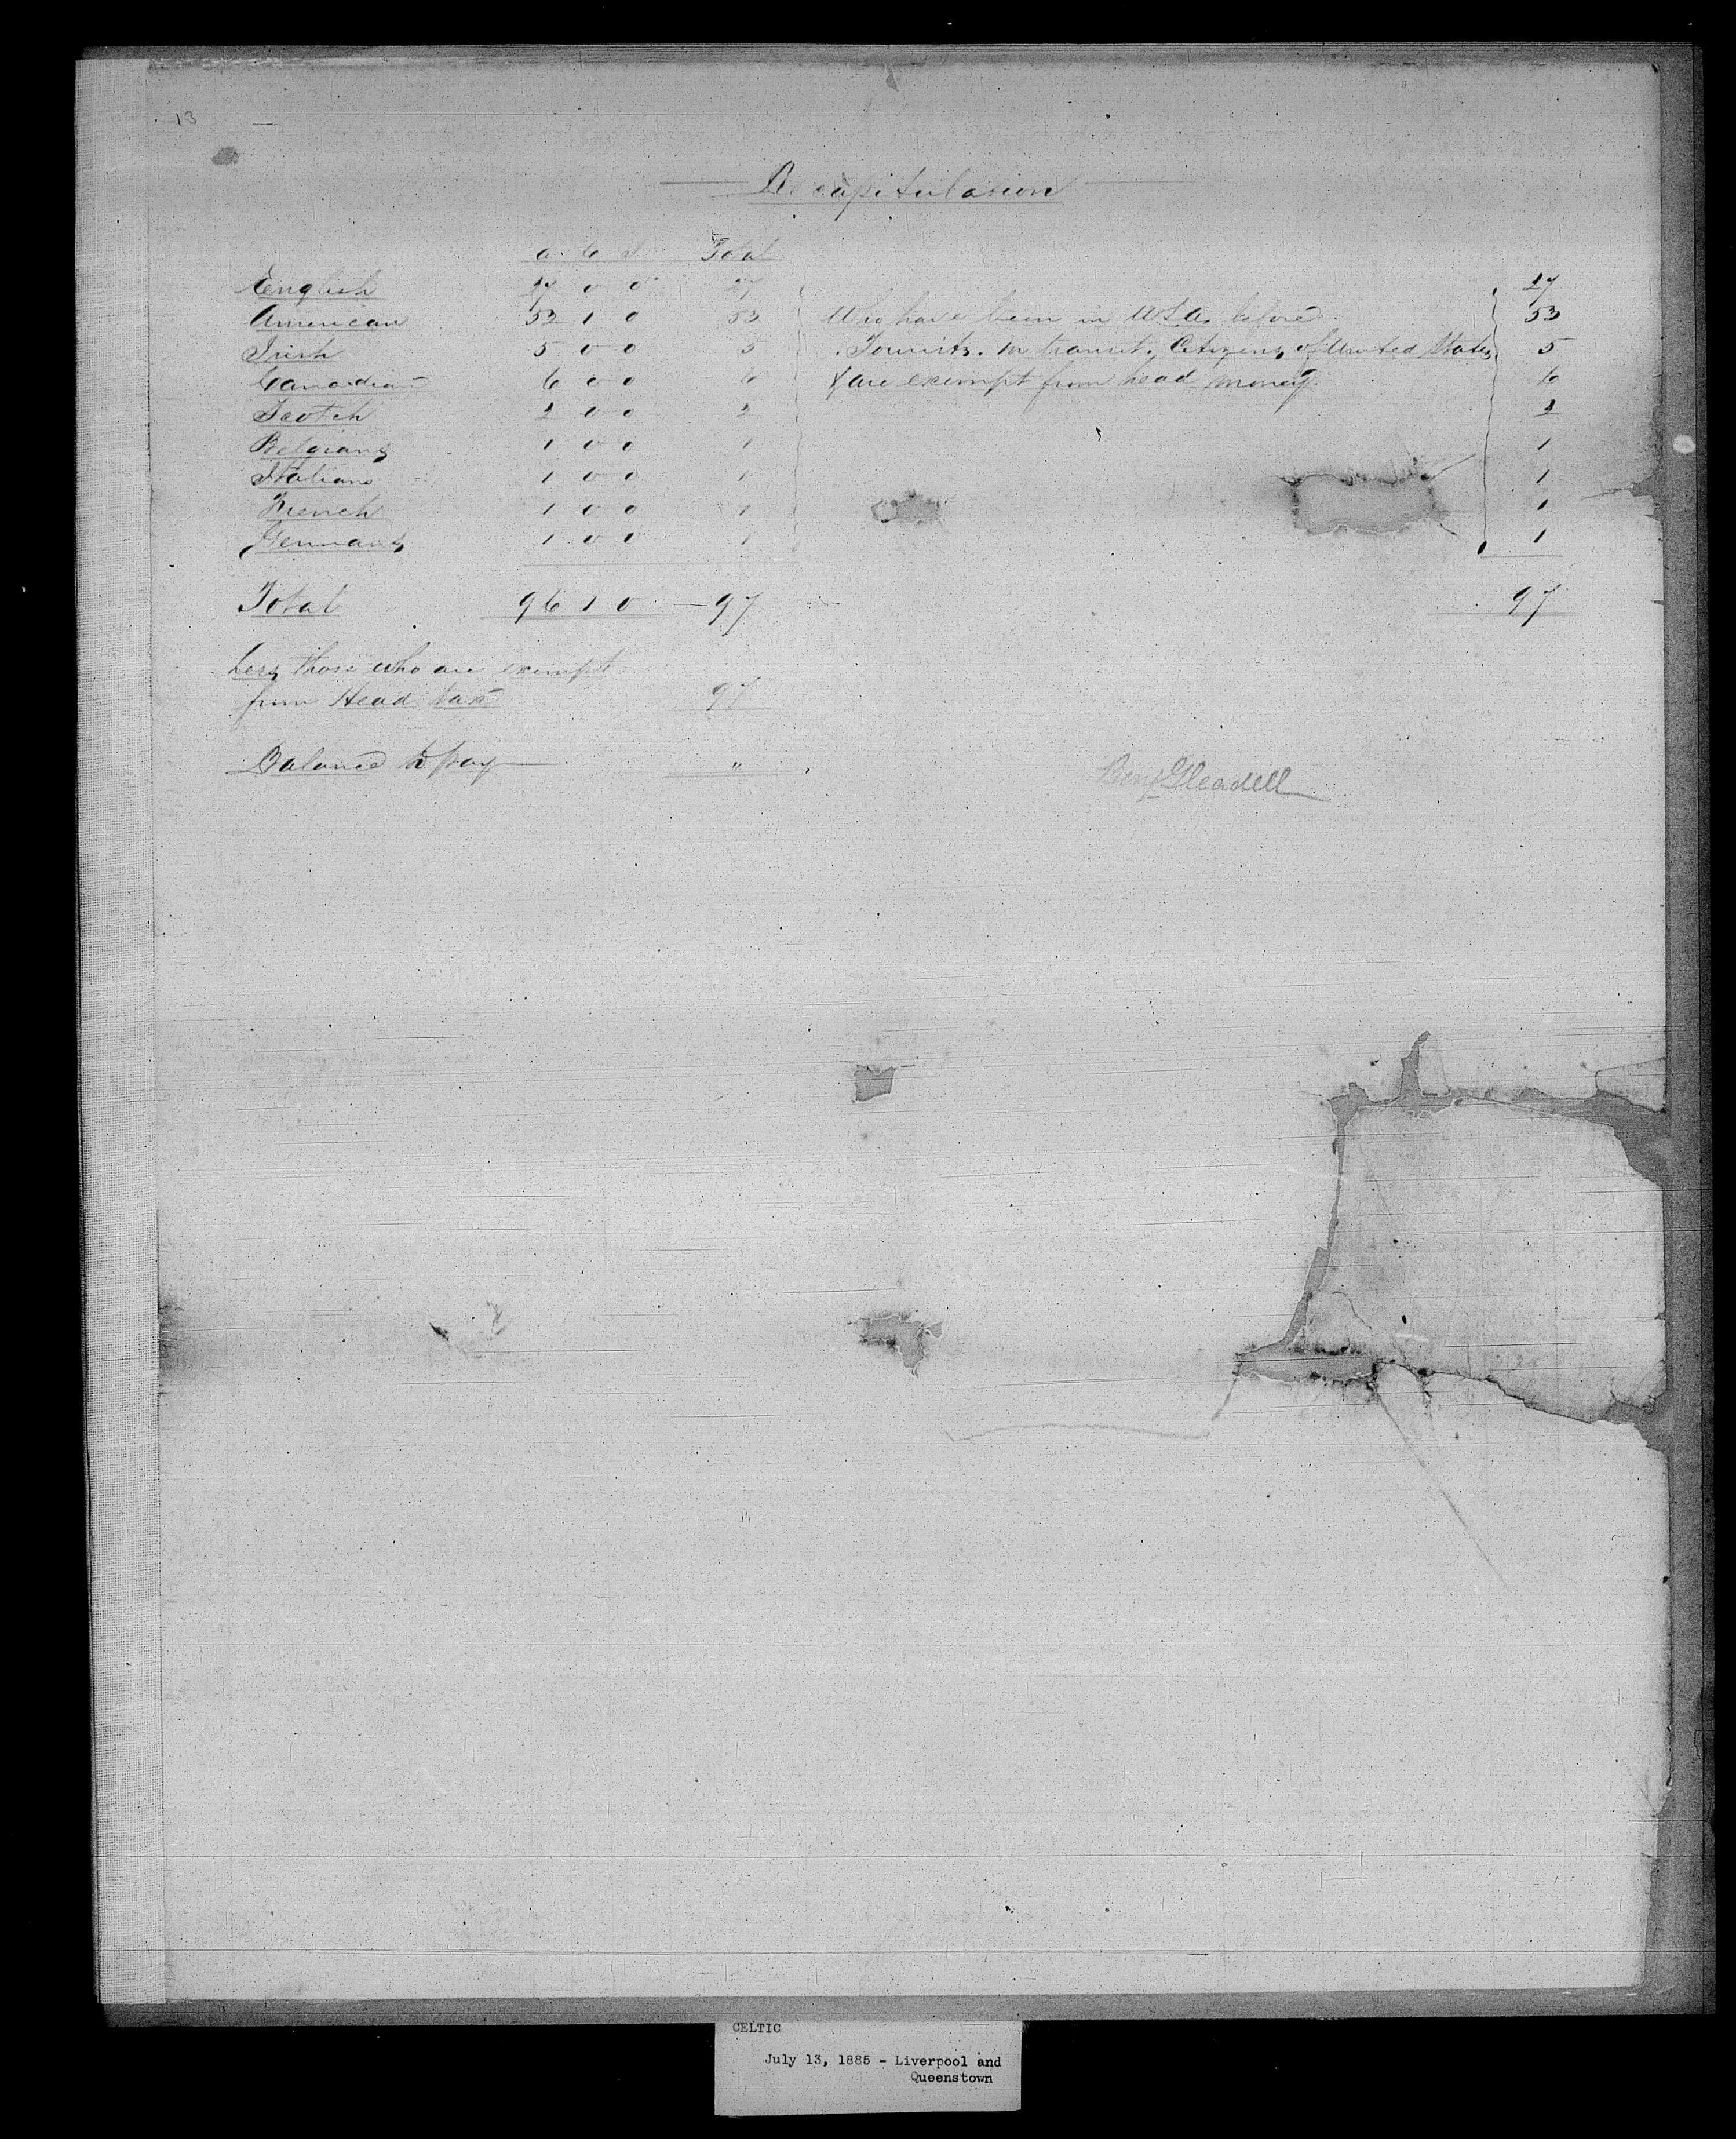 13
Recapitulation
a. c. i. Total
English 27 0 0 27 27
American 52 1 0 53 Who have been in U.S.A. before 53
Irish 5 0 0 5 Tourists. In transit, Citizens of United States 5
Canadian 6 0 0 6 & are exempt from head money. 6
Scotch 2 0 0 2 2
Belgians 1 0 0 1 1
Italians 1 0 0 1 1
French 1 0 0 1 1
Germans 1 0 0 1 1
Total 96 1 0 97 97
Less those who are exempt
from Head tax 97
Balance to pay "
Benj Gleadell
CELTIC
July 13, 1885 - Liverpool and
Queenstown